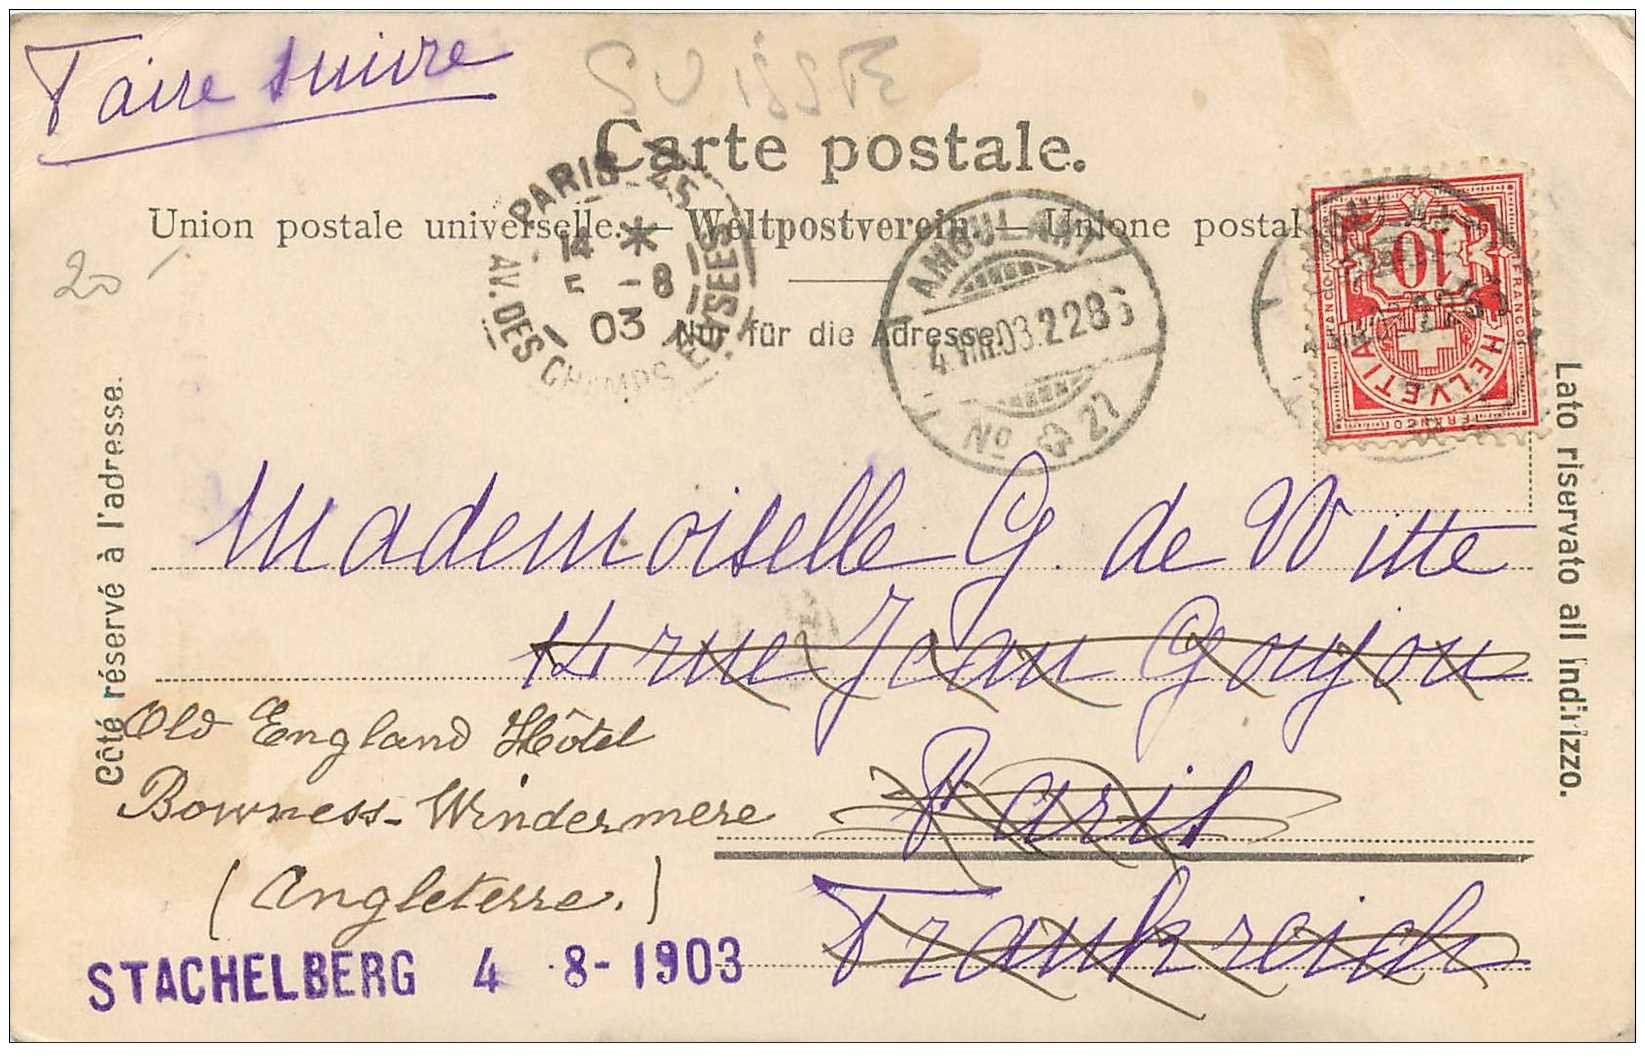 Faire suivre
Carte postale.
Union postale universelle. — Weltpostverein. — Unione postal
Nur für die Adresse.
Côté réservé à l'adresse.
Lato riservato all indirizzo.
20
PARIS
14 *
5 -8
03
AV. DES CHAMPS ELYSEES
AMBULANT
4.VIII.03.2286
No 27
FRANCO
10
HELVETIA
FRANCO
FRANCO
Mademoiselle G. de Witte
14 rue Jean Goujon
Paris
Frankreich
Old England Hôtel
Bowness-Windermere
(Angleterre.)
STACHELBERG 4 8-1903